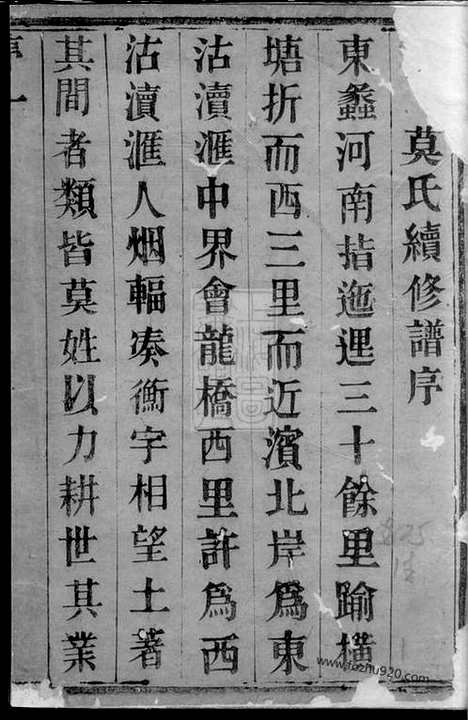 莫氏續修譜序
東蠡河南指迤邐三十餘里踰橫
塘折而西三里而近濱北岸為東
沽瀆滙中界會龍橋西里許為西
沽瀆滙人烟輻湊衡宇相望土著
其間者類皆莫姓以力耕世其業
序 一
www.fozhu920.com